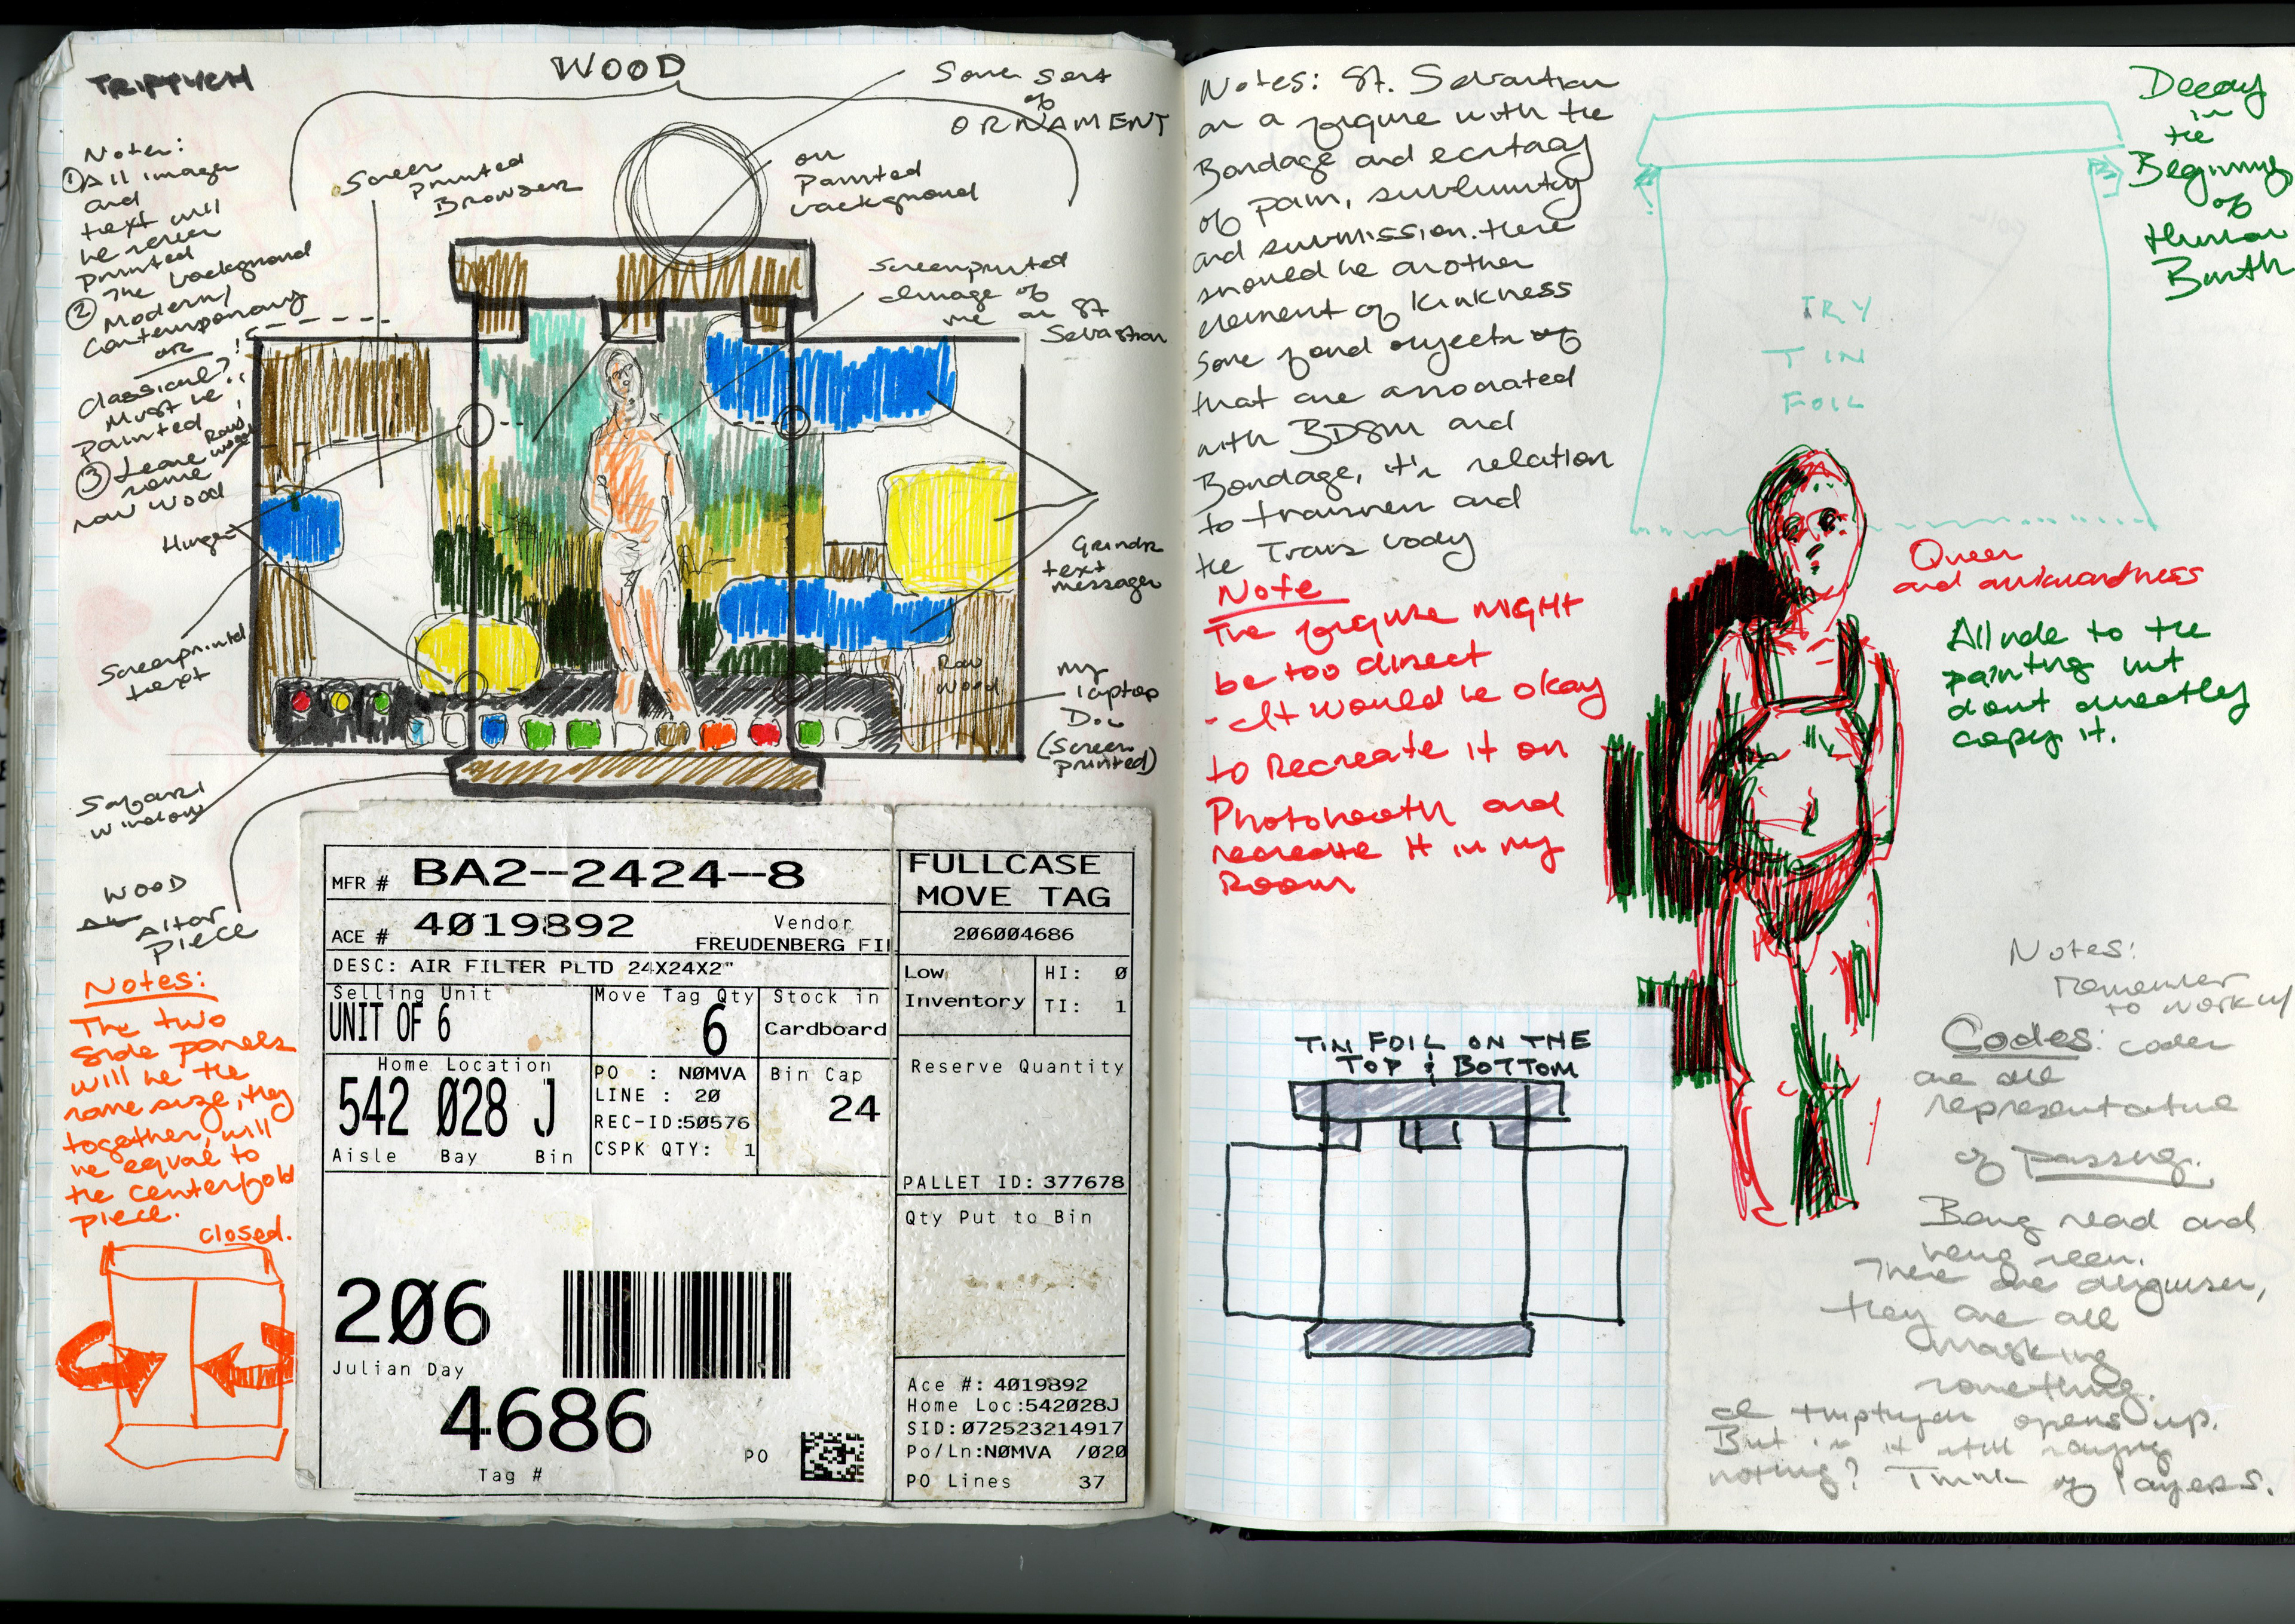 TRIPTYCH
WOOD
Some sort
of
ORNAMENT
Notes:
① All images
and
text will
be screen
printed
② The background
Modern/
Contemporary
OR
Classical?!
Must be
painted
③ Leave
some
raw wood
Raw
wood
Screen
printed
Browser
on
Painted
background
Screenprinted
image of
me as St
Sebastian
Hinges
Grindr
text
messages
Screenprinted
text
Raw
Wood
my
laptop
Doc
(Screen
printed)
Safari
window
WOOD
Altar
piece
Notes:
The two
side panels
will be the
same size, they
together, will
be equal to
the centerfold
piece.
closed.
MFR # BA2--2424--8
ACE # 4019892
Vendor
FREUDENBERG FIL
DESC: AIR FILTER PLTD 24X24X2"
Selling Unit
UNIT OF 6
Move Tag Qty
6
Stock in
Cardboard
Home Location
542 028 J
Aisle Bay Bin
PO : N0MVA
LINE : 20
REC-ID:50576
CSPK QTY: 1
Bin Cap
24
206
Julian Day
4686
Tag #
PO
FULLCASE
MOVE TAG
206004686
Low
Inventory
HI: 0
TI: 1
Reserve Quantity
PALLET ID: 377678
Qty Put to Bin
Ace #: 4019892
Home Loc:542028J
SID:072523214917
Po/Ln:N0MVA /020
PO Lines 37
Notes: St. Sebastian
as a figure with the
Bondage and ecstasy
of pain, sublimity
and submission. there
should be another
element of kinkness
some found objects of
that are associated
with BDSM and
Bondage, it's relation
to transness and
the Trans body
Note
The figure MIGHT
be too direct
- It would be okay
to Recreate it on
Photobooth and
recreate it in my
Room
TRY
TIN
FOIL
Decay
in
the
Beginning
of
Human
Birth
Queer
and awkwardness
Allude to the
painting but
dont directly
copy it.
TIN FOIL ON THE
TOP & BOTTOM
Notes:
remember
to work w/
Codes: codes
are all
representative
of passing.
Being read and
being seen.
There are disguises,
they are all
masking
something.
A triptych opens up.
But is it still saying
nothing? Think of layers.